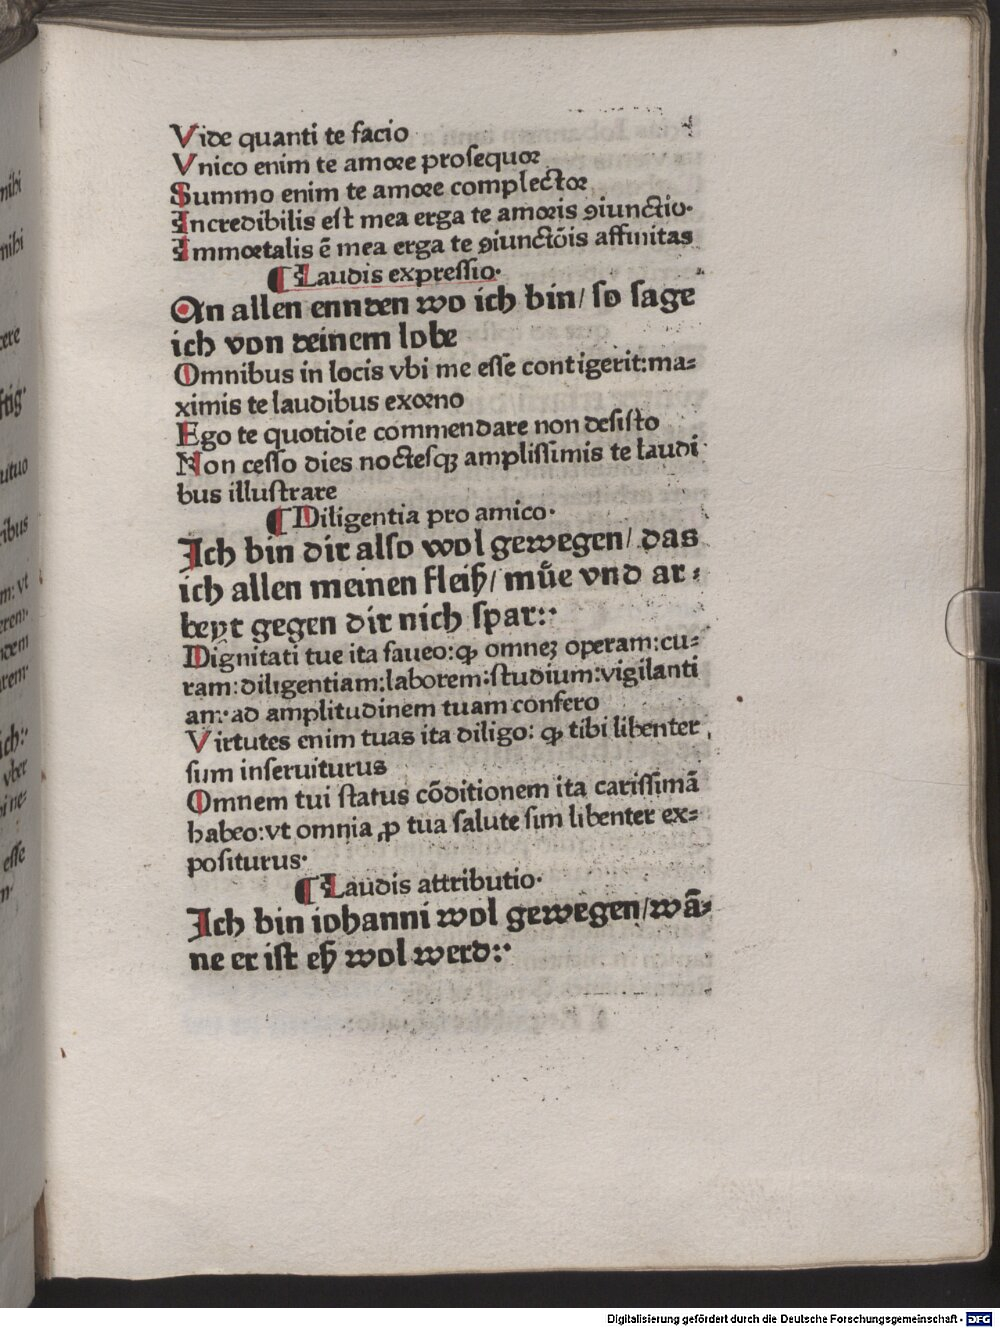 Vide quanti te facio
Vnico enim te amore prosequor
Summo enim te amore complector
Incredibilis est mea erga te amoris ꝯiunctio·
Immortalis ē mea erga te ꝯiunctōis affinitas
¶ Laudis expressio·
An allen ennden wo ich bin/ so sage
ich von deinem lobe
Omnibus in locis vbi me esse contigerit:ma⸗
ximis te laudibus exorno
Ego te quotidie commendare non desisto
Non cesso dies noctesqꝫ amplissimis te laudi
bus illustrare
¶ Diligentia pro amico·
Ich bin dir also wol gewegen/ das
ich allen meinen fleiß/ můe vnd ar⸗
beyt gegen dir nich spar:·
Dignitati tue ita faueo: ꝙ omneꝫ operam:cu⸗
ram:diligentiam:laborem:studium:vigilanti
am: ad amplitudinem tuam confero
Virtutes enim tuas ita diligo: ꝙ tibi libenter
sum inseruiturus
Omnem tui status cōditionem ita carissimā
habeo:vt omnia ꝓ tua salute sim libenter ex⸗
positurus·
¶ Laudis attributio·
Ich bin iohanni wol gewegen/wā⸗
ne er ist eß wol werd:·
Digitalisierung gefördert durch die Deutsche Forschungsgemeinschaft - DFG